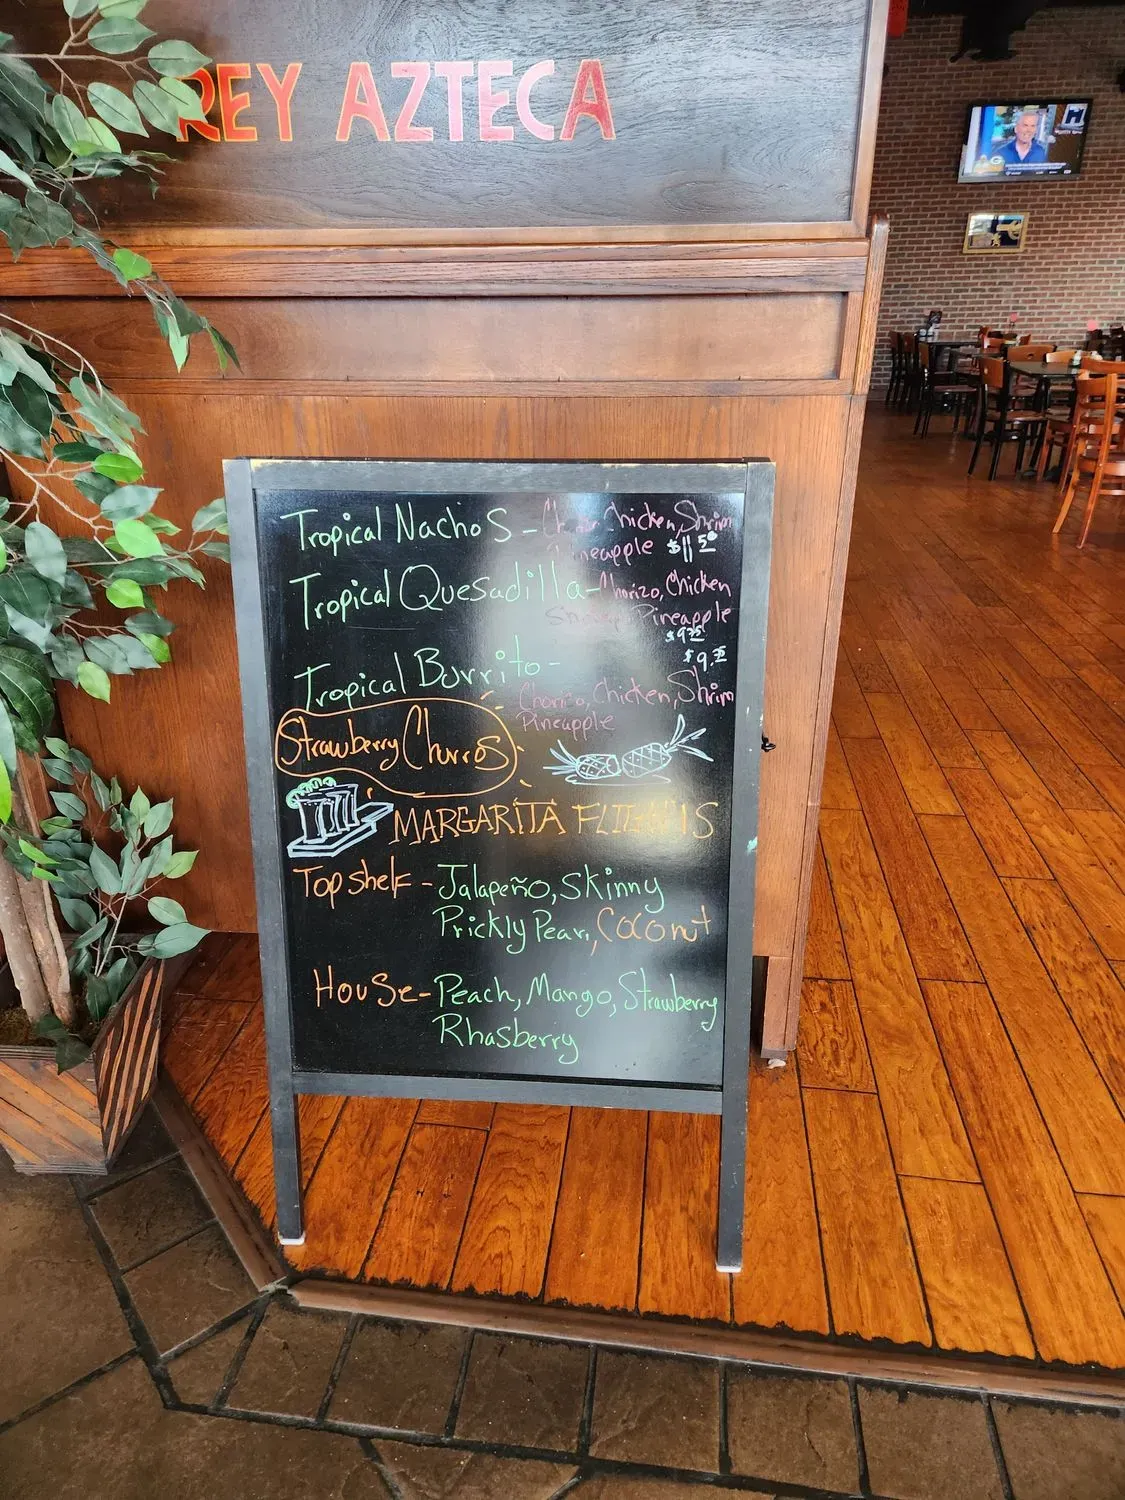 REY AZTECA
Tropical Nachos - Chicken, Shrim
Pineapple $11.50
Tropical Quesadilla - Chorizo, Chicken
Shrimp Pineapple
$9.25
$9.25
Tropical Burrito -
Chorizo, Chicken, Shrim
Pineapple
Strawberry Churros
MARGARITA FLIGHTS
Top shelf - Jalapeño, Skinny
Prickly Pear, Coconut
House - Peach, Mango, Strawberry
Rhasberry